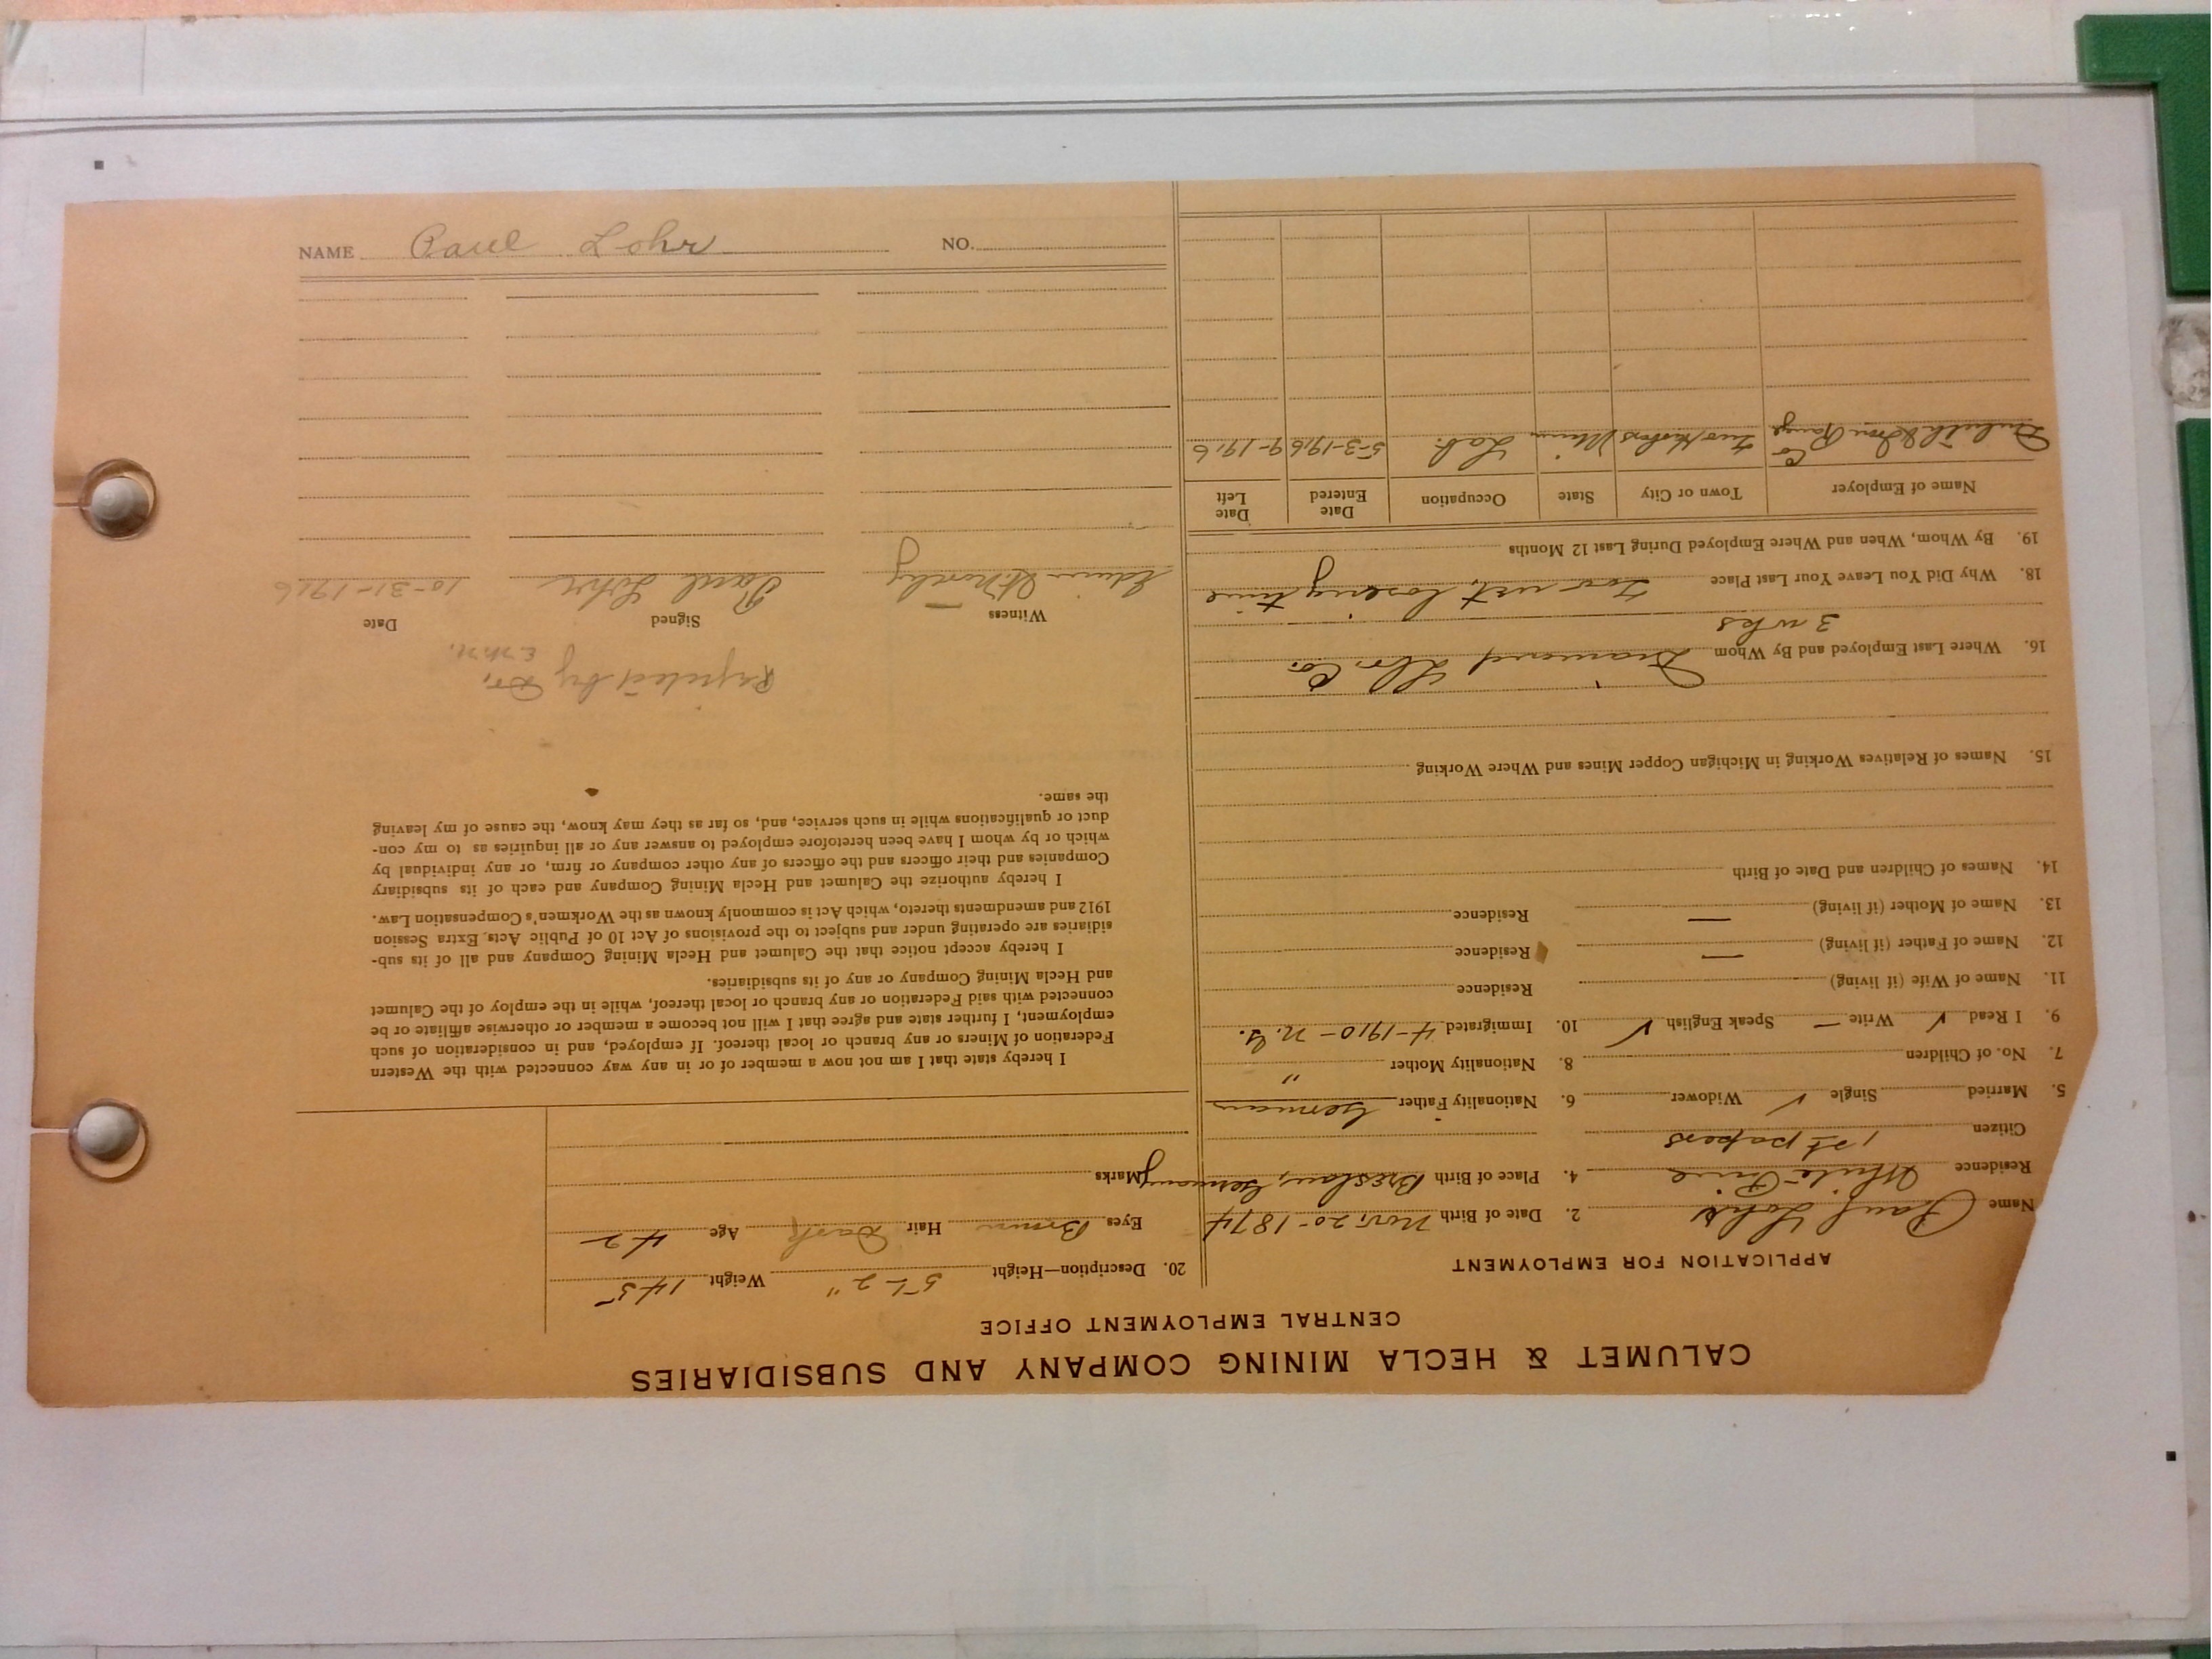 CALUMET & HECLA MINING COMPANY AND SUBSIDIARIES
CENTRAL EMPLOYMENT OFFICE
APPLICATION FOR EMPLOYMENT
Name Paul Lohr
2. Date of Birth Nov. 20-1874
Residence White Pine
4. Place of Birth Breslau, Germany
Citizen 1st papers
5. Married Single ✓ Widower
6. Nationality Father German
7. No. of Children
8. Nationality Mother "
9. I Read ✓ Write — Speak English ✓
10. Immigrated 4-1910-N.Y.
11. Name of Wife (if living) Residence
12. Name of Father (if living) — Residence
13. Name of Mother (if living) — Residence
14. Names of Children and Date of Birth
15. Names of Relatives Working in Michigan Copper Mines and Where Working
16. Where Last Employed and By Whom Diamond Lbr. Co.
3 wks
18. Why Did You Leave Your Last Place Too wet, loseing time
19. By Whom, When and Where Employed During Last 12 Months
Name of Employer Town or City State Occupation Date Entered Date Left
Duluth & Iron Range Co Two Harbors Minn Lab. 5-3-1916 9-1916
20. Description—Height 5'-2" Weight 145
Eyes Brown Hair Dark Age 42
Marks
I hereby state that I am not now a member of or in any way connected with the Western
Federation of Miners or any branch or local thereof. If employed, and in consideration of such
employment, I further state and agree that I will not become a member or otherwise affiliate or be
connected with said Federation or any branch or local thereof, while in the employ of the Calumet
and Hecla Mining Company or any of its subsidiaries.
I hereby accept notice that the Calumet and Hecla Mining Company and all of its sub-
sidiaries are operating under and subject to the provisions of Act 10 of Public Acts, Extra Session
1912 and amendments thereto, which Act is commonly known as the Workmen's Compensation Law.
I hereby authorize the Calumet and Hecla Mining Company and each of its subsidiary
Companies and their officers and the officers of any other company or firm, or any individual by
which or by whom I have been heretofore employed to answer any or all inquiries as to my con-
duct or qualifications while in such service, and, so far as they may know, the cause of my leaving
the same.
Rejected by Dr.
Witness Signed Date
Edwin Paul Lohr 10-31-1916
NAME Paul Lohr NO.